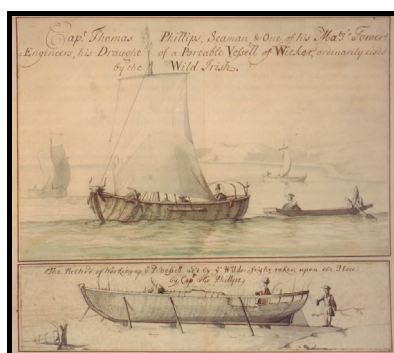 Capt. Thomas Phillips, Seaman, & One, of his Maty's Tower
Engineers, his Draught of a Portable Vessell of Wicker, ordinarily used
by the Wild Irish.
The Method of Working up ye Vessell us'd by ye Wilde Irish; taken upon the Place
by Capt. Tho: Phillips;